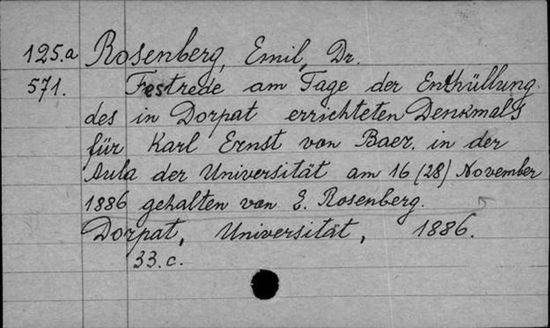 125.a Rosenberg, Emil, Dr.
571. Festrede am Tage der Enthüllung
des in Dorpat errichteten Denkmals
für Karl Ernst von Baer, in der
Aula der Universität am 16 (28) November
1886 gehalten von E. Rosenberg.
Dorpat, Universität, 1886.
33.c.